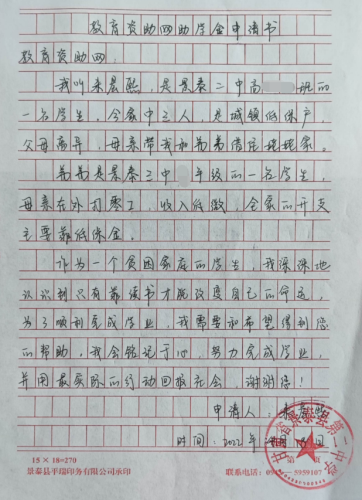 教育资助网助学金申请书
教育资助网:
我叫来晨熙,是景泰二中高 班的
一名学生,全家中三人,是城镇低保户,
父母离异,母亲带我和弟弟借住姥姥家。
弟弟是景泰三中 年级的一名学生,
母亲在外打零工,收入低微,全家的开支
主要靠低保金。
作为一个贫困家庭的学生,我深深地
认识到只有靠读书才能改变自己的命运,
为了顺利完成学业,我需要和希望得到您
的帮助,我会铭记于心,努力完成学业,
并用最实际的行动回报社会,谢谢您!
申请人:
时间:2022年
15×18=270
景泰县平瑞印务有限公司承印
联系电话: 5959107
甘肃省景泰县第二中学